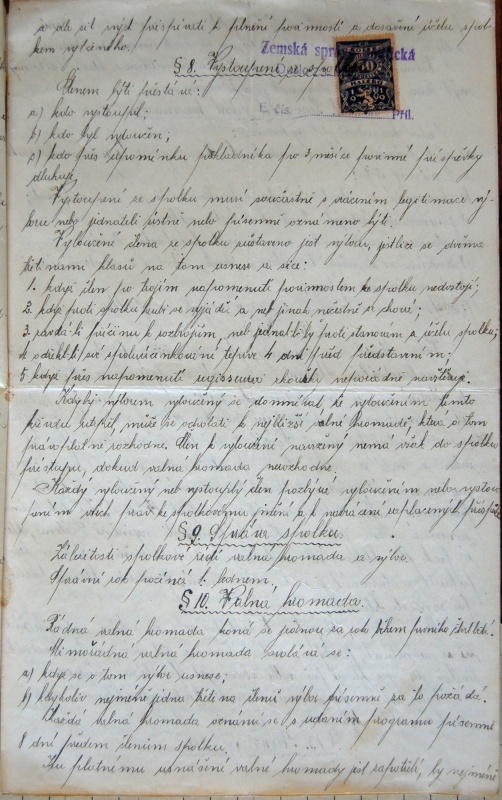 a dle sil svých přispívati k plnění povinností a dosažení účelu spol-
kem vytčeného.
Zemská spr
ická
§ 8. Vystoupení ze spolku.
E. čís.
Příl.
Členem býti přestává:
a) kdo vystoupil;
b) kdo byl vyloučen;
c) kdo přes upomínku pokladníka po 3 měsíce povinné příspěvky
dluhuje.
Vystoupení ze spolku musí současně s vrácením legitimace vý-
boru nebo jednateli ústně nebo písemně oznámeno býti.
Vyloučení člena ze spolku zůstaveno jest výboru, jestliže se dvěma
třetinami hlasů na tom usnese a sice:
1. když člen po trojím napomenutí povinnostem ke spolku nedostojí;
2. když proti spolku se vyjádří a neb jinak nečestně se chová;
3. zavdá-li příčinu k rozbrojům, neb jednal-li by proti stanovám a účelu spolku;
4. odřekl-li své spoluúčinkování teprve 4 dni před představením;
5. když přes napomenutí regisseura zkoušky nepořádně navštěvuje.
Kdyby výborem vyloučený se domníval, že vyloučením tímto
křivdu utrpěl, může se odvolati k nejbližší valné hromadě, která o tom
právoplatně rozhodne. Člen k vyloučení navržený nemá však do spolku
přístupu, dokud valná hromada nerozhodne.
Každý vyloučený neb vystouplý člen pozbývá vyloučením nebo vystou-
pením všech práv ke spolkovému jmění a k nahrazení zaplacených příspěvků.
§ 9. Správa spolku.
Záležitosti spolkové řídí valná hromada a výbor.
Správní rok počíná 1. lednem.
§ 10. Valná hromada.
Řádná valná hromada koná se jednou za rok během prvního čtvrtletí.
Mimořádná valná hromada svolává se:
a) když se o tom výbor usnese;
b) kdykoliv nejméně jedna třetina členů výbor písemně za to požádá.
Každá valná hromada oznámí se s udáním programu písemně
8 dní předem členům spolku.
Ku platnému usnášení valné hromady jest zapotřebí, by nejméně